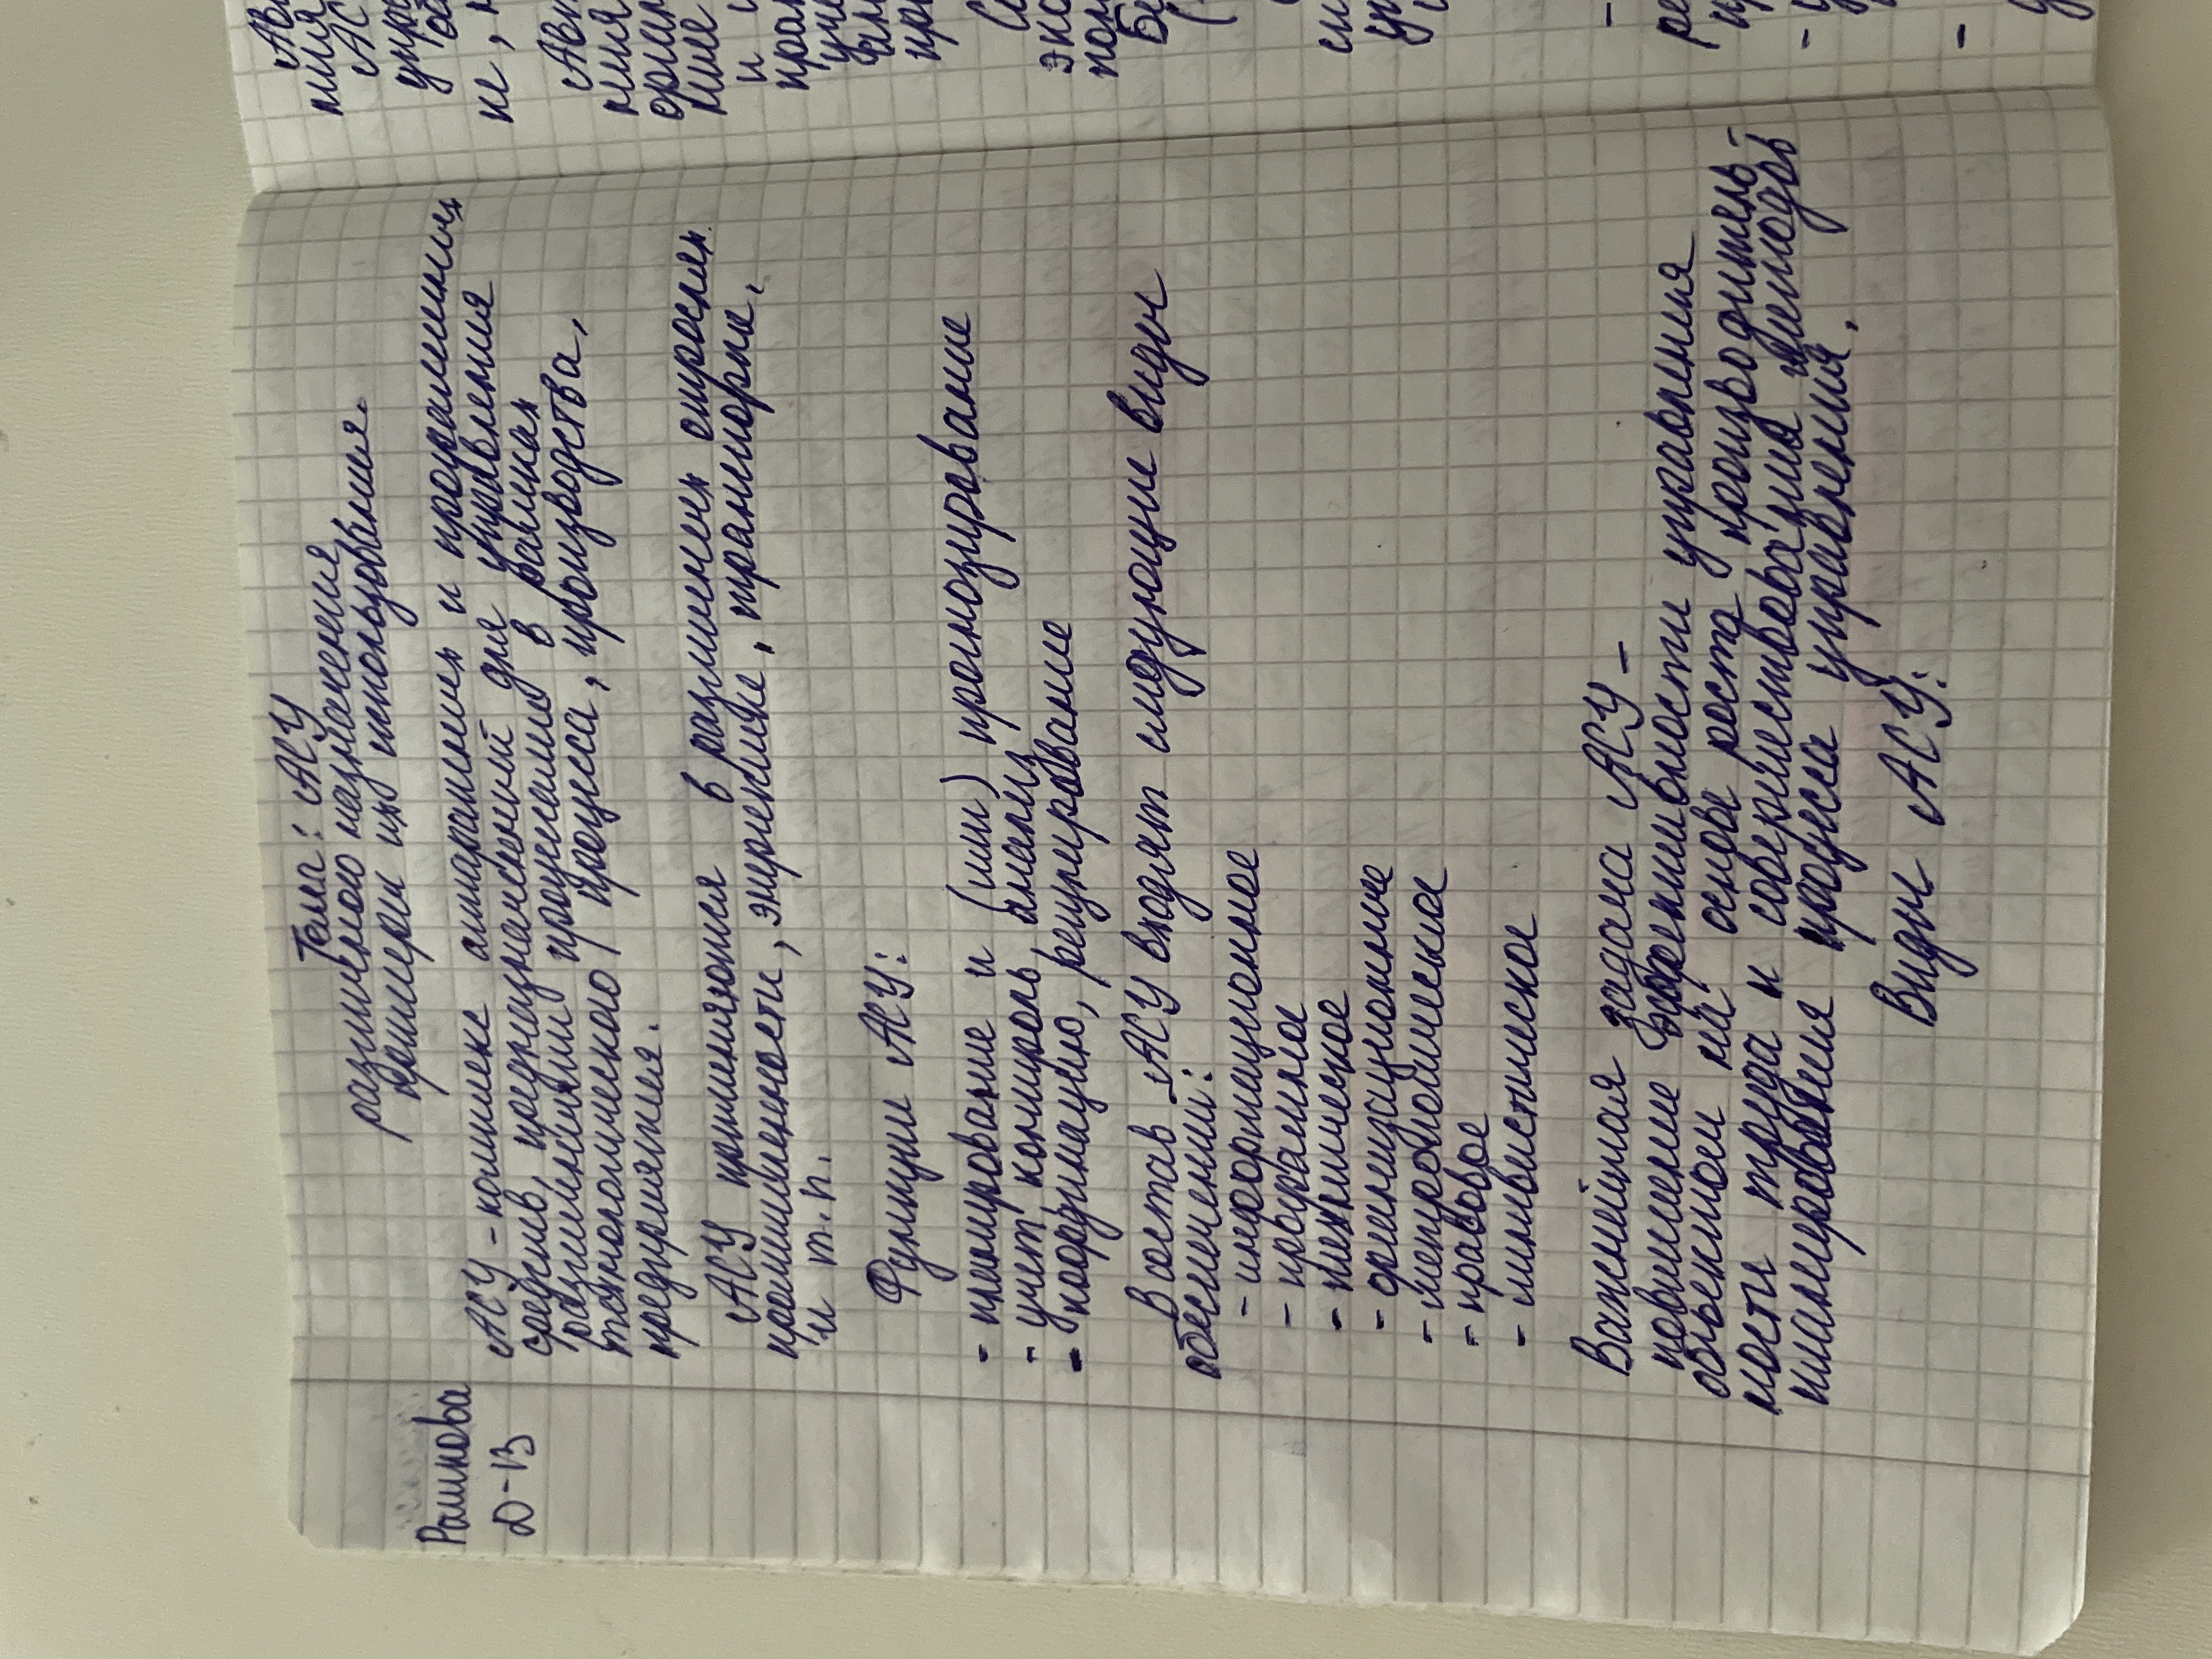 Рашкова
Д-13
Тема: АСУ
различного назначения,
примеры их использования.
АСУ - комплекс аппаратных и программных
средств, предназначений для управления
различными процессами в рамках
технологического процесса, производства,
предприятия.
АСУ применяются в различных отраслях
промышленности, энергетике, транспорте,
и т.п.
Функции АСУ:
- планирование и (или) прогнозирование
- учет, контроль, анализ
- координацию, регулирование
В состав АСУ входят следующие виды
обеспечений:
- информационное
- програмное
- техническое
- организационное
- метрологическое
- правовое
- лингвистическое
Важнейшая задача АСУ -
повышение эффективности управления
объектом на основе роста производитель-
ности труда и совершенствования методов
планирования процесса управления.
Виды АСУ: